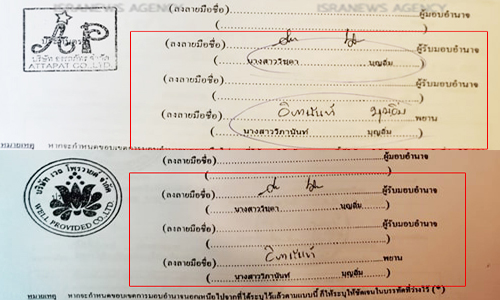 ISRANEWS AGENCY
ISRANEWS AGENCY
(ลงลายมือชื่อ)........ผู้มอบอำนาจ
(........)
AP
บริษัท อรรถภัทร จำกัด
ATTAPAT CO.,LTD.
(ลงลายมือชื่อ)........ผู้รับมอบอำนาจ
(นางสาววิษดา บุญอิ่ม)
(ลงลายมือชื่อ)........ผู้รับมอบอำนาจ
(........)
(ลงลายมือชื่อ)........พยาน
(นางสาววิภานันท์ บุญอิ่ม)
หมายเหตุ
(ลงลายมือชื่อ)........ผู้มอบอำนาจ
(........)
บริษัท เวล โพรวายเด จำกัด
WELL PROVIDED CO.,LTD.
(ลงลายมือชื่อ)........ผู้รับมอบอำนาจ
(นางสาววิษดา บุญอิ่ม)
(ลงลายมือชื่อ)........ผู้รับมอบอำนาจ
(........)
(ลงลายมือชื่อ)........พยาน
(นางสาววิภานันท์ บุญอิ่ม)
หมายเหตุ หากจะกำหนดขอบเขตการมอบอำนาจนอกเหนือไปจากที่ได้ระบุไว้แล้วตามแบบนี้ ก็ให้ระบุให้ชัดเจนในบรรทัดที่ว่างไว้ (*)